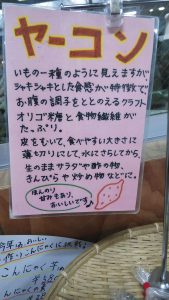 ヤーコン
いもの一種のように見えますが
シャキシャキとした食感が特徴です
お腹の調子をととのえるフラクト
オリゴ糖と食物繊維が
たっぷり。
皮をむいて、食べやすい大きさに
薄切りにして、水にさらしてから
生のままサラダや酢の物、
きんぴらや炒め物などに。
ほんのり
甘みもあり、
おいしいです♪
こんにゃく芋